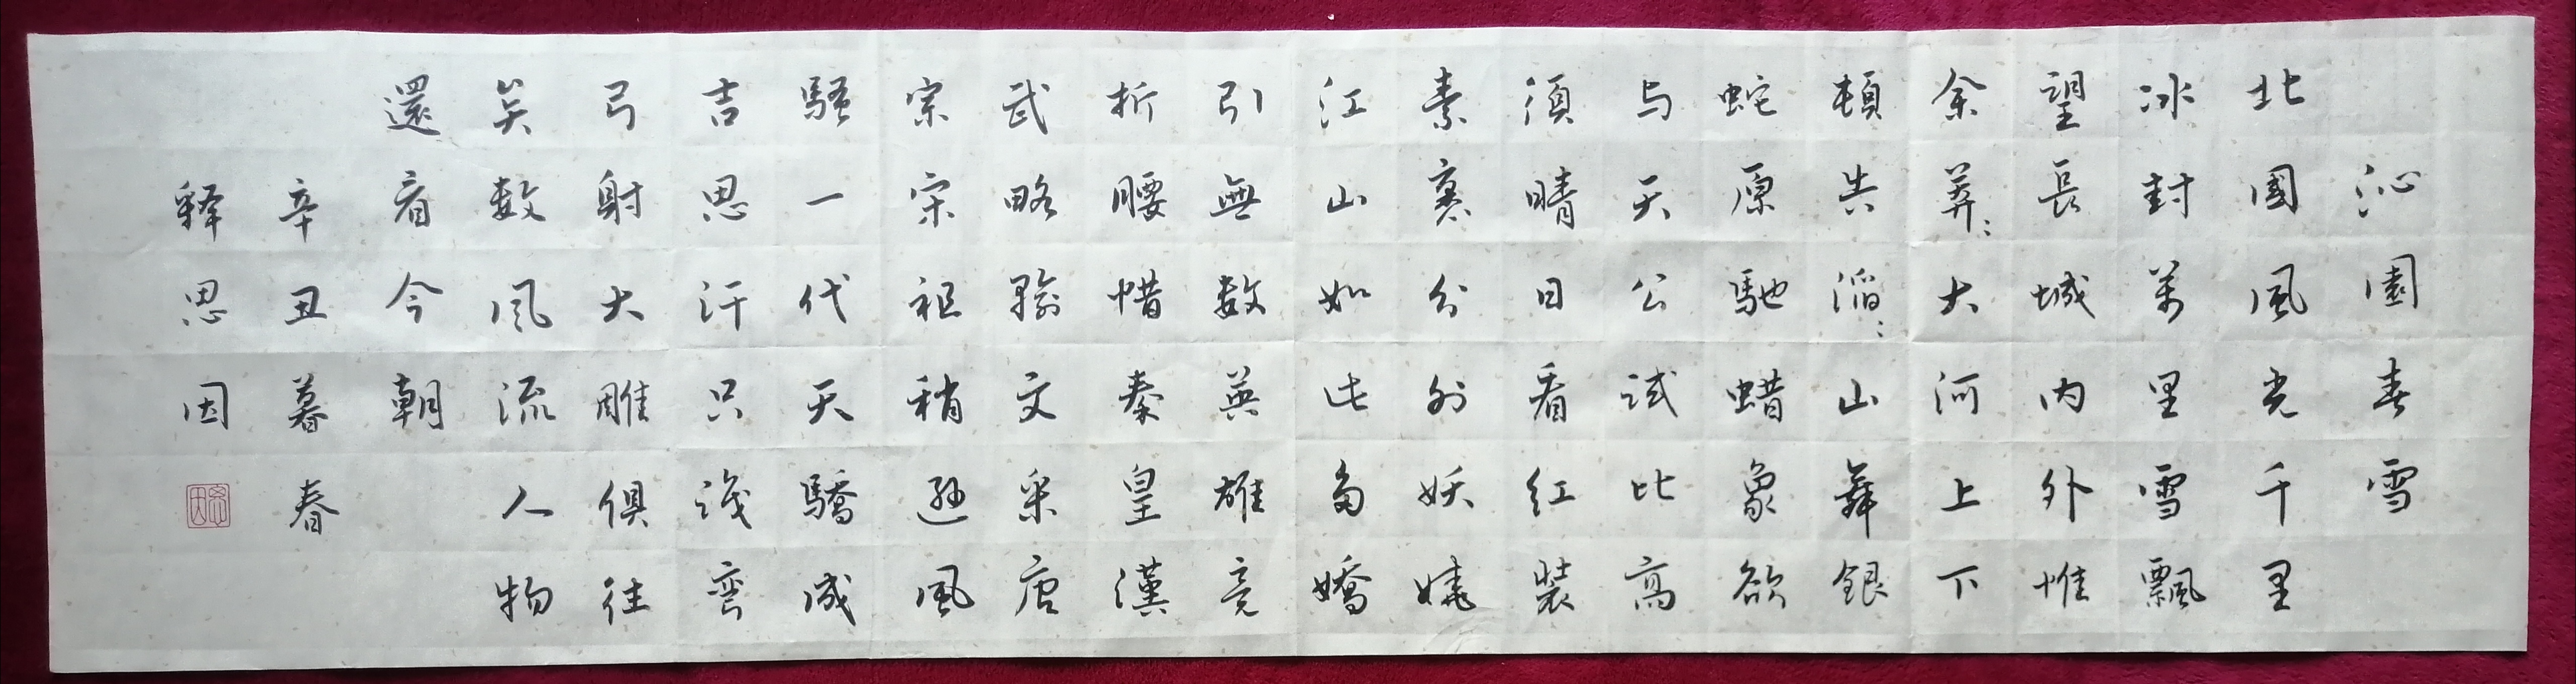 沁園春雪
北國風光千里
冰封萬里雪飄
望長城内外惟
余莽〻大河上下
頓失滔〻山舞銀
蛇原馳蜡象欲
与天公試比高
須晴日看紅裝
素裹分外妖嬈
江山如此多嬌
引無数英雄竞
折腰惜秦皇漢
武略輸文采唐
宗宋祖稍遜風
騷一代天驕成
吉思汗只識彎
弓射大雕俱往
矣数風流人物
還看今朝
辛丑暮春
释思因